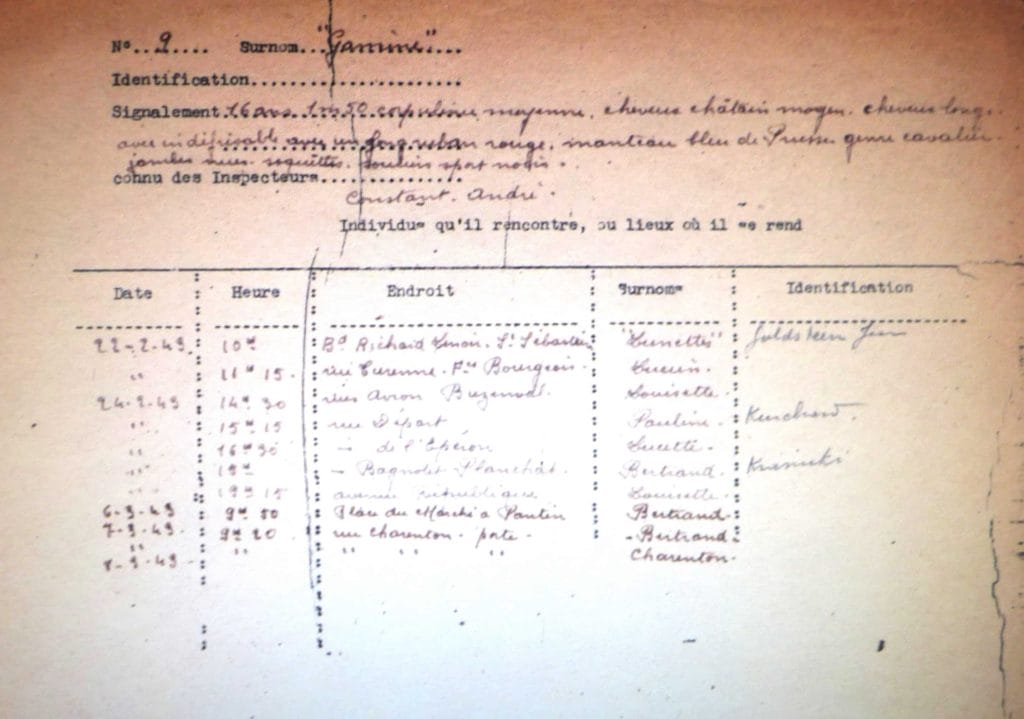 N°..9.... Surnom..."Gamine"....
Identification......................
Signalement 16 ans 1m50 corpulence moyenne, cheveux châtain moyen. cheveux longs.
avec indéfrisable avec un ruban rouge, manteau bleu de Prusse genre cavalier.
jambes nues. soquettes. souliers sport noirs.
connu des Inspecteurs................
Constant. André.
Individus qu'il rencontre, ou lieux où il se rend
Date Heure Endroit Surnoms Identification
22-2-43 10h Bd Richard Lenoir. St Sébastien "Lunettes" Goldstein
" 11h 15. rue Turenne. Fcs Bourgeois. Lucien.
24-2-43 14h 30 rues Avron Buzenval. Louisette
" 15h 15 rue Départ Pauline.
" 16h 30 - de l'Eperon Lucette.
" 19h - Bagnolet Planchat. Bertrand. Krasucki
" 19h 15 avenue République Louisette.
6-3-43 9h 50 Place du Marché à Pantin Bertrand.
7-3-43. 9h 20 rue Charenton. porte. - Bertrand.
" " " " " Charenton.
8-3-43